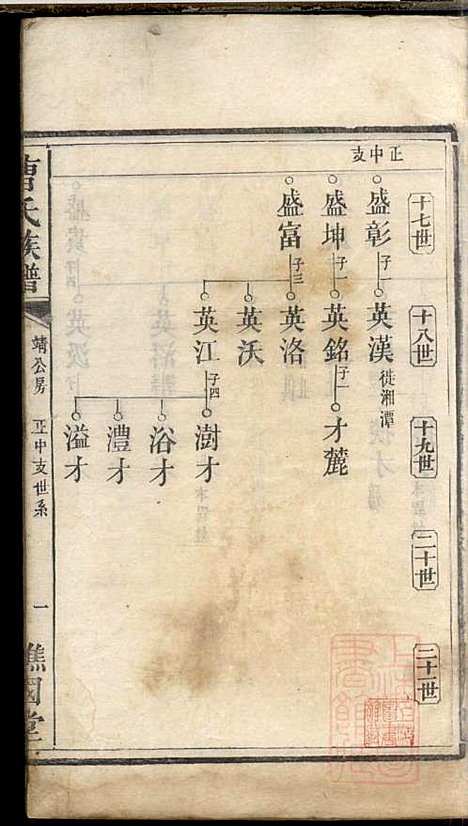 正中支
十七世
十八世
十九世
二十世
二十一世
盛彰 子一
英漢 徙湘潭
盛坤 子一
英銘 子一
才麓
盛富 子三
英洛
英沃
英江 子四
澍才
浴才
澧才
溢才
曹氏族譜
靖公房 正中支世系 一
譙國堂